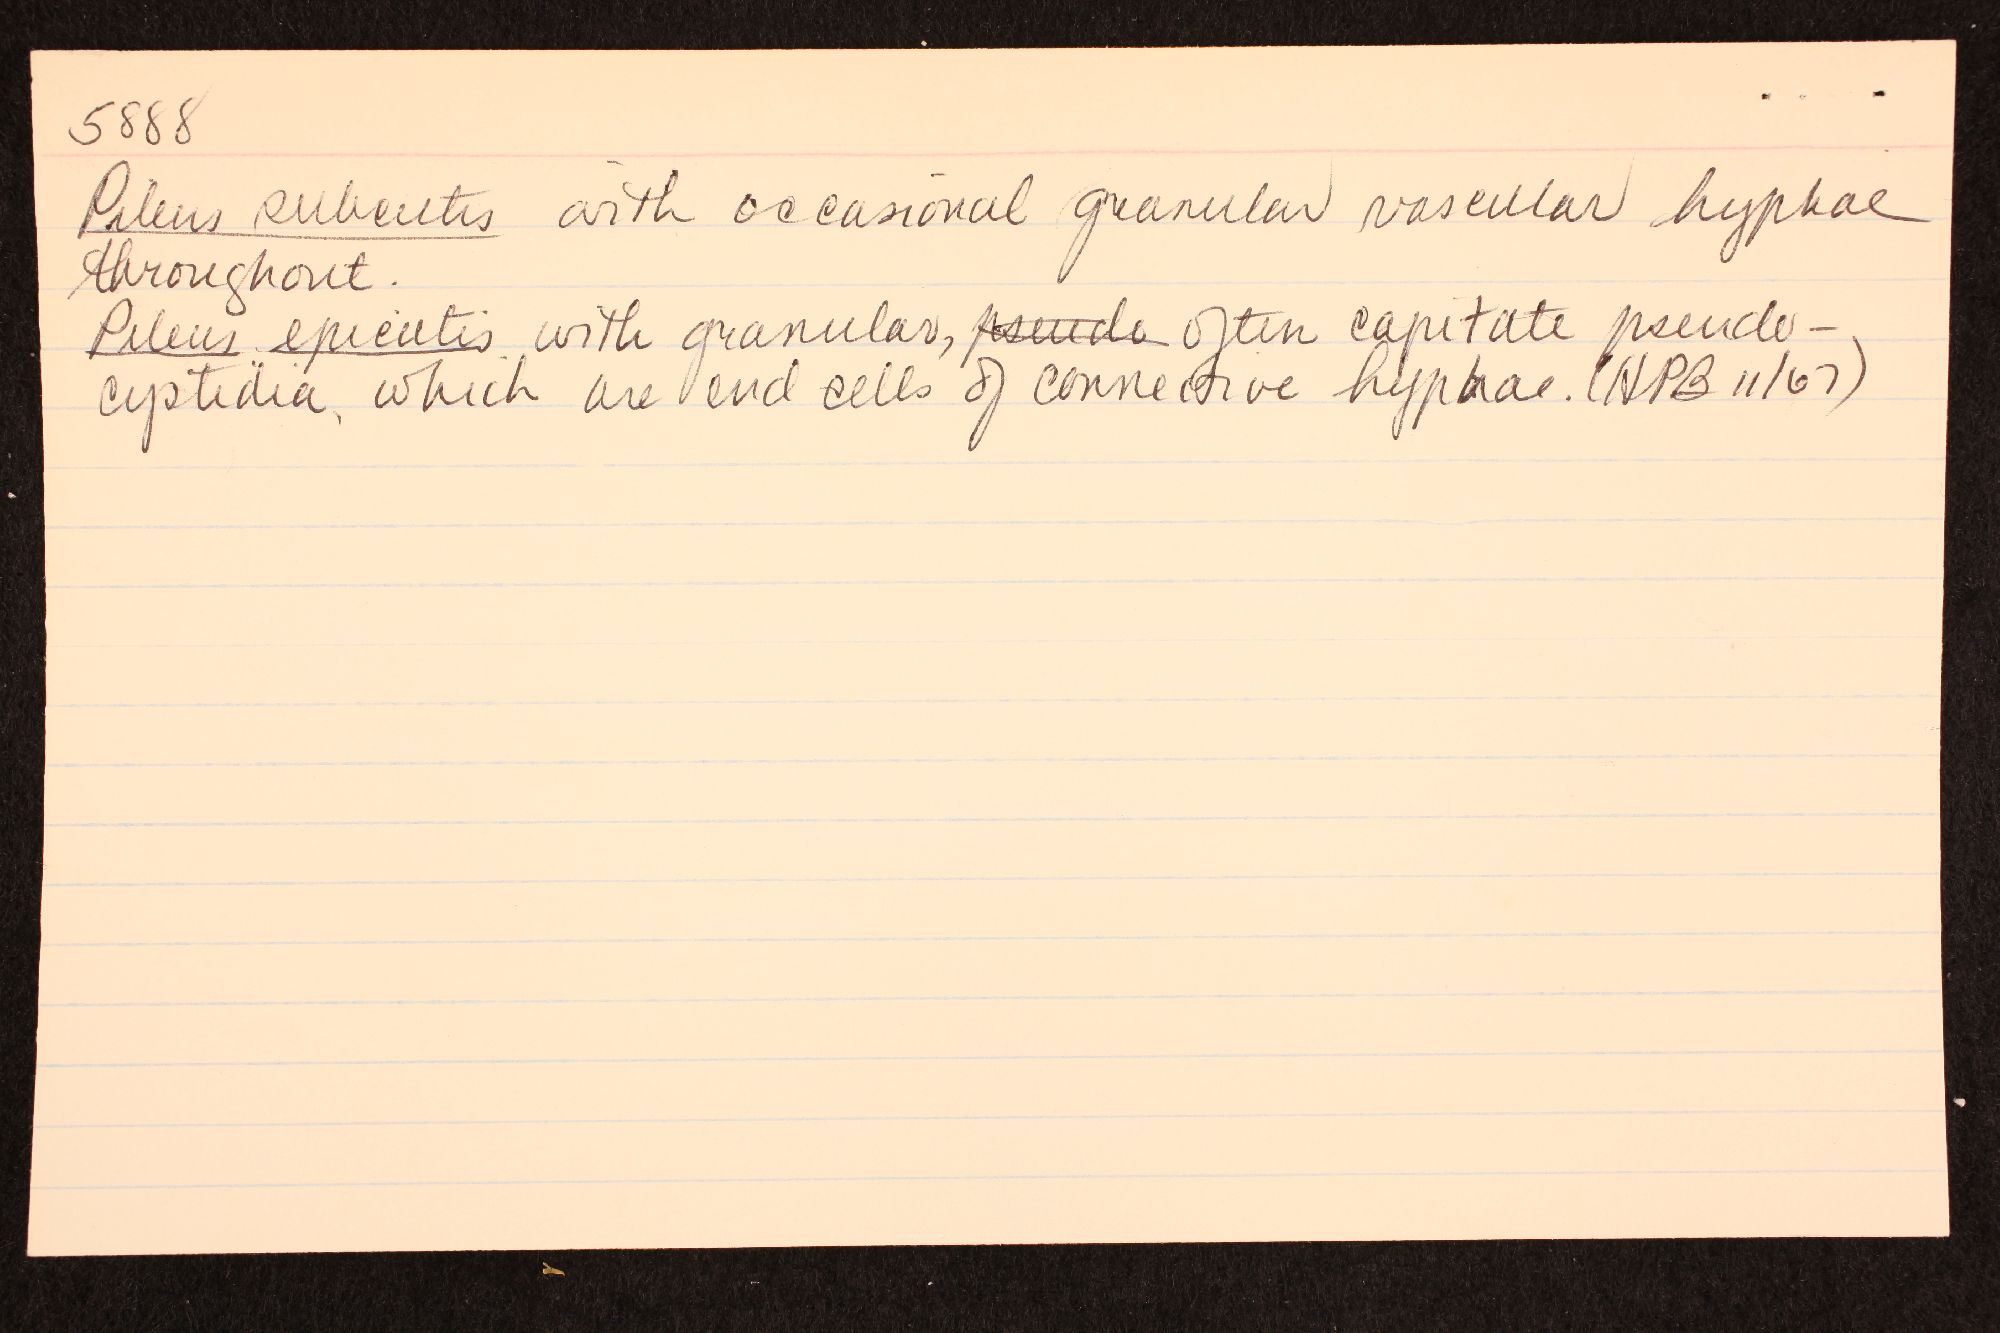 5888
Pileus subcutis with occasional granular vascular hyphae
throughout.
Pileus epicutis with granular, pseudo often capitate pseudo-
cystidia, which are end cells of connective hyphae. (HPB 11/67)